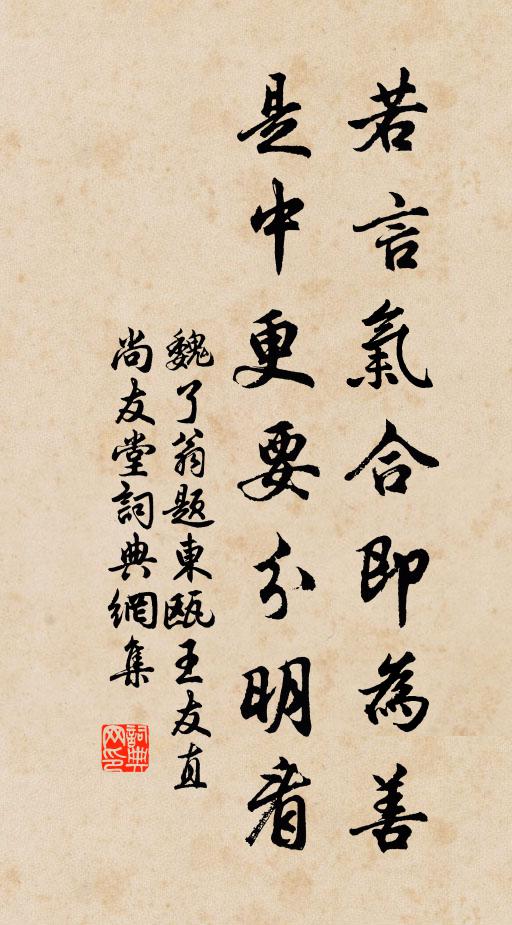 若言氣合即為善
是中更要分明看
魏了翁題東甌王友直
尚友堂詞典網集
詞典網印